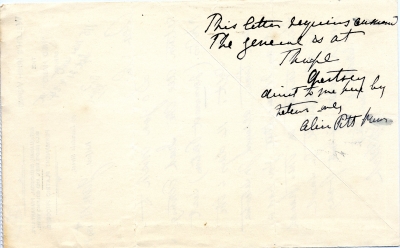 This letter requires answer
The general is at
Thorpe
Chertsey
direct to me here by
return only
Alice Pitt